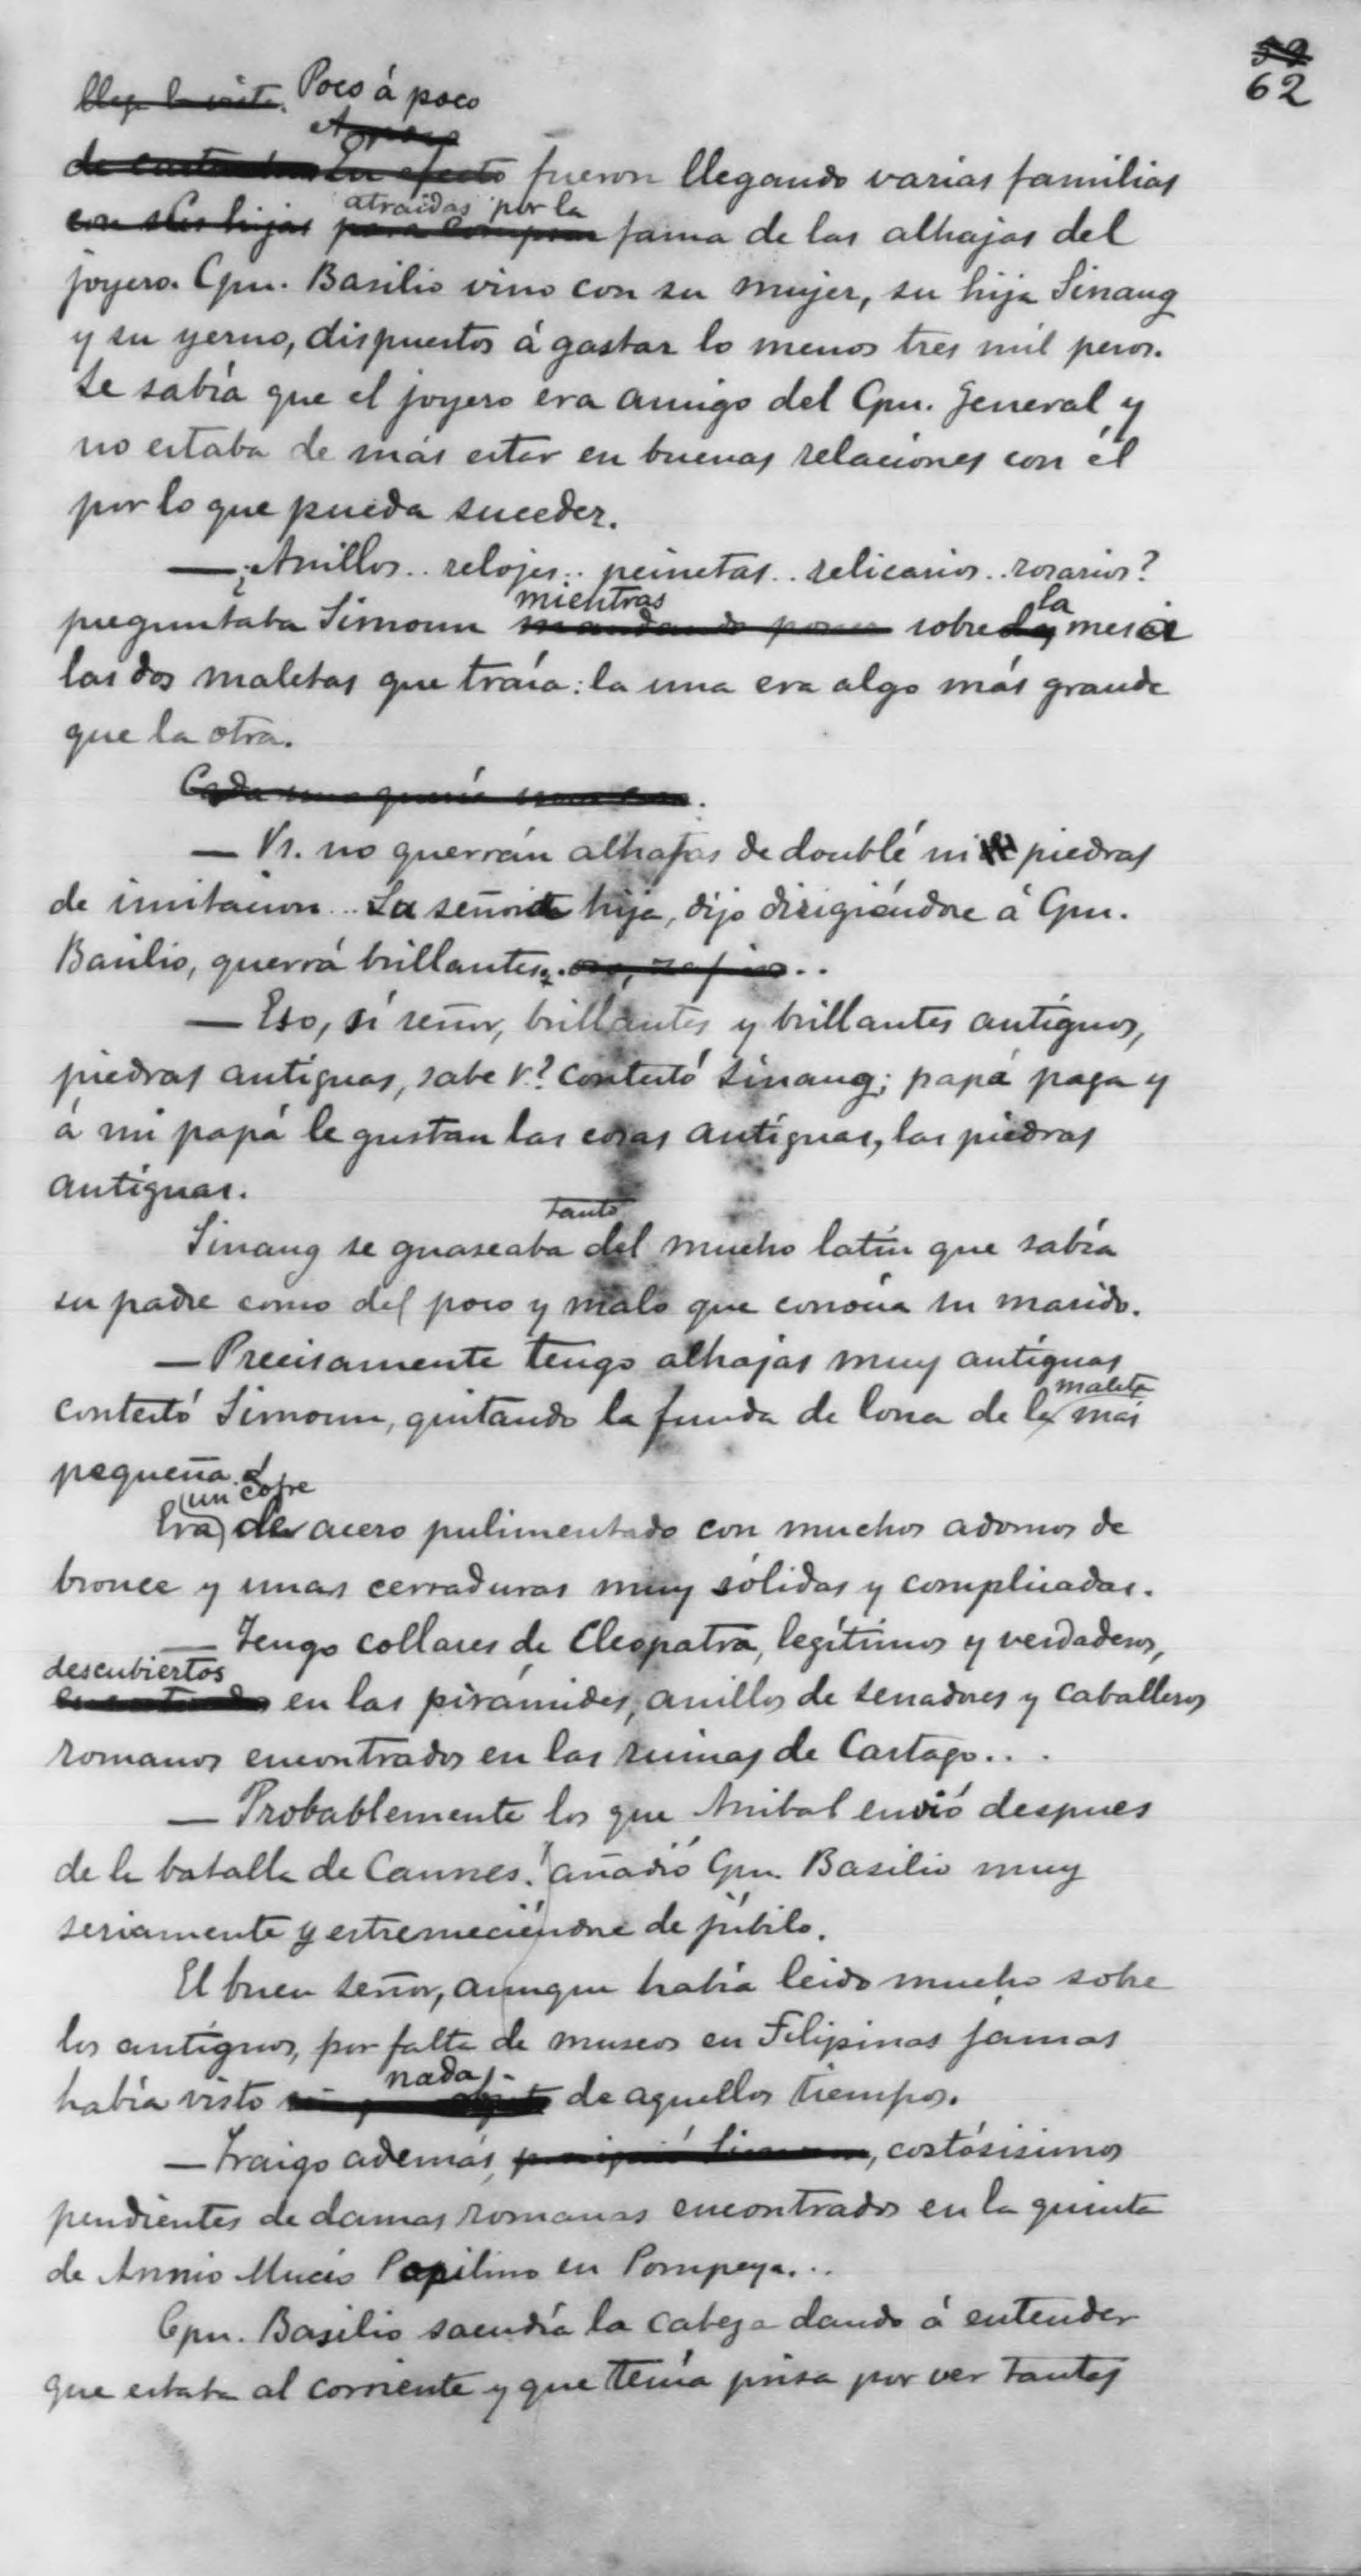 59
62
Poco á poco
En efecto fueron llegando varias familias
con sus hijas para comprar atraidas por la fama de las alhajas del
joyero. Cpn. Basilio vino con su mujer, su hija Sinang
y su yerno, dispuestos á gastar lo menos tres mil pesos.
Se sabía que el joyero era amigo del Cpn. General y
no estaba de más estar en buenas relaciones con él
por lo que pueda suceder.
— ¿Anillos.. relojes.. peinetas.. relicarios.. rosarios?
preguntaba Simoun mandando poner mientras sobre la mesa
las dos maletas que traía: la una era algo más grande
que la otra.
Cada una quería
— Vs. no querrán alhajas de doublé ni de piedras
de imitacion... La señorita hija, dijo dirigiéndose á Cpn.
Basilio, querrá brillantes..
— Eso, sí señor, brillantes y brillantes antíguos,
piedras antíguas, sabe V.? contestó Sinang; papá paga y
á mi papá le gustan las cosas antíguas, las piedras
antíguas.
Sinang se guaseaba tanto del mucho latín que sabía
su padre como del poco y malo que conocía su marido.
— Precisamente tengo alhajas muy antíguas
contestó Simoun, quitando la funda de lona de la maleta más
pequeña.
Era un cofre de acero pulimentado con muchos adornos de
bronce y unas cerraduras muy sólidas y complicadas.
— Tengo collares de Cleopatra, legítimos y verdaderos,
descubiertos en las pirámides, anillos de senadores y caballeros
romanos encontrados en las ruinas de Cartago...
— Probablemente los que Anibal envió despues
de la batalla de Cannes! añadió Cpn. Basilio muy
seriamente y estremeciéndose de júbilo.
El buen señor, aunque había leido mucho sobre
los antíguos, por falta de museos en Filipinas jamas
había visto nada de aquellos tiempos.
— Traigo además, prosiguió Simoun, costósisimos
pendientes de damas romanas encontrados en la quinta
de Annio Mucio Papilino en Pompeya...
Cpn. Basilio sacudía la cabeza dando á entender
que estaba al corriente y que tenía prisa por ver tantas